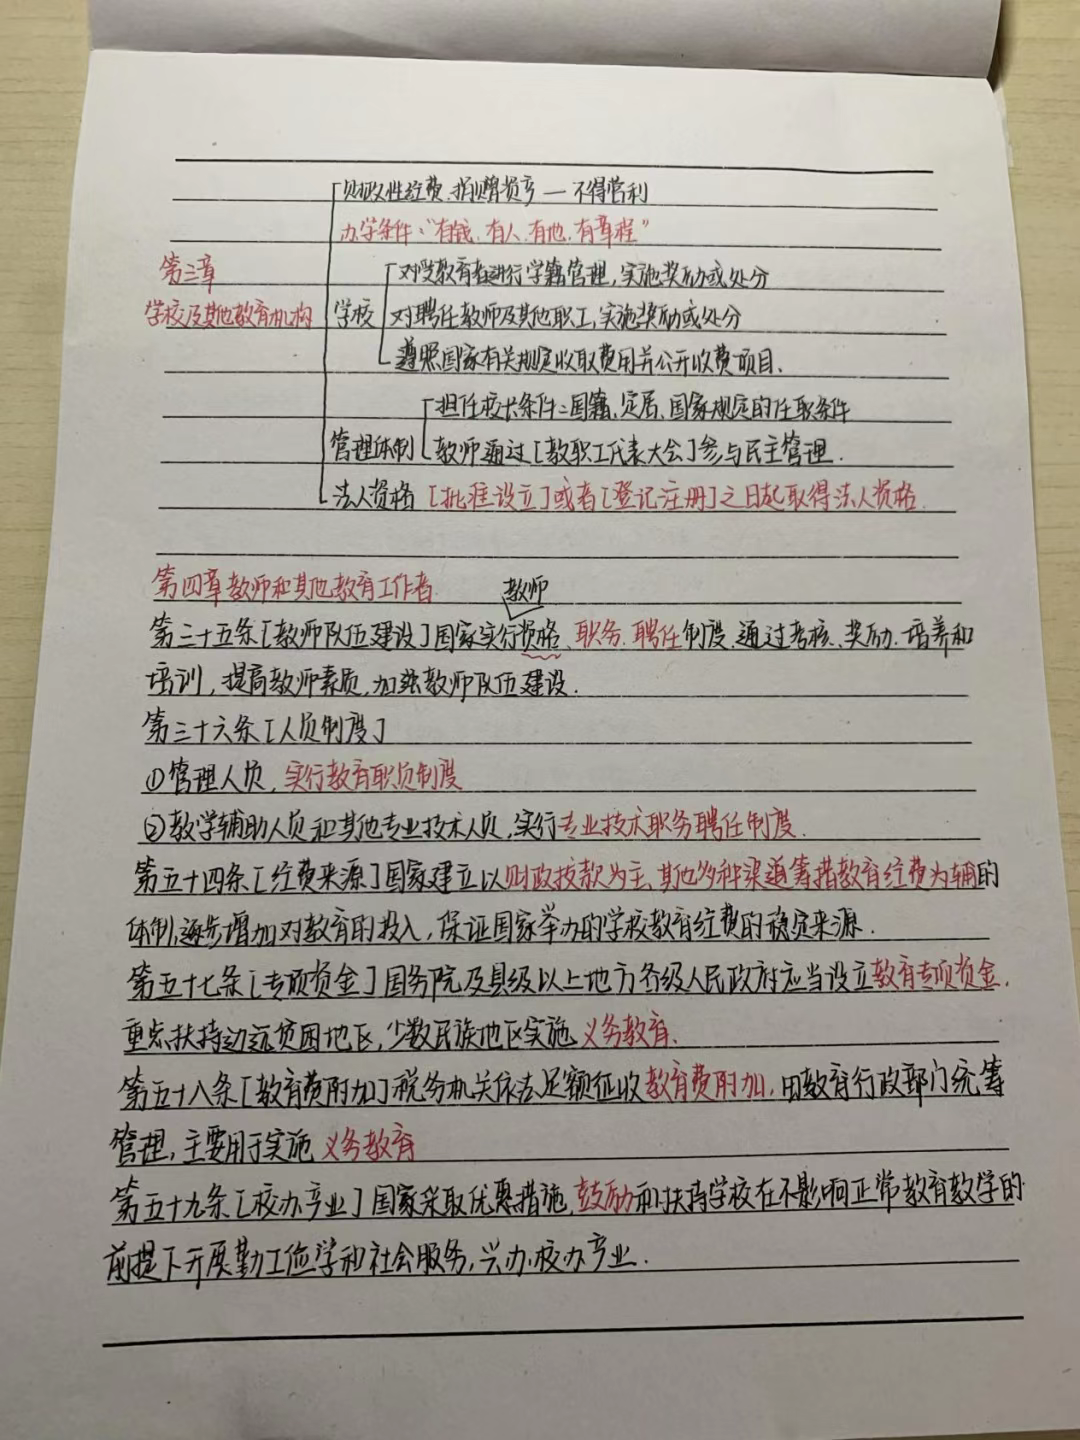 财政性经费、捐赠资产 — 不得营利
办学条件:"有钱、有人、有地、有章程"
第三章
学校及其他教育机构
学校
对受教育者进行学籍管理,实施奖励或处分
对聘任教师及其他职工,实施奖励或处分
遵照国家有关规定收取费用并公开收费项目.
管理体制
担任校长条件:国籍、定居、国家规定的任职条件
教师通过[教职工代表大会]参与民主管理.
法人资格 [批准设立]或者[登记注册]之日起取得法人资格.
第四章教师和其他教育工作者
教师
第三十五条[教师队伍建设]国家实行资格、职务、聘任制度.通过考核、奖励、培养和
培训,提高教师素质,加强教师队伍建设.
第三十六条[人员制度]
①管理人员,实行教育职员制度
②教学辅助人员和其他专业技术人员,实行专业技术职务聘任制度.
第五十四条[经费来源]国家建立以财政拨款为主、其他多种渠道筹措教育经费为辅的
体制,逐步增加对教育的投入,保证国家举办的学校教育经费的稳定来源.
第五十七条[专项资金]国务院及县级以上地方各级人民政府应当设立教育专项资金.
重点扶持边远贫困地区,少数民族地区实施义务教育.
第五十八条[教育费附加]税务机关依法足额征收教育费附加,由教育行政部门统筹
管理,主要用于实施义务教育
第五十九条[校办产业]国家采取优惠措施,鼓励和扶持学校在不影响正常教育教学的
前提下开展勤工俭学和社会服务,兴办校办产业.